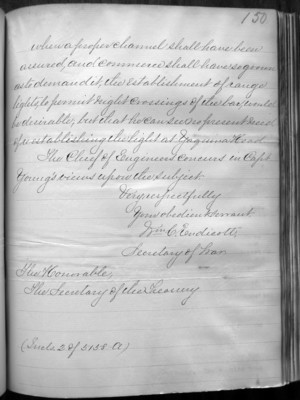 150
when a proper channel shall have been
secured, and commerce shall have so grown
as to demand it, the establishment of range
lights to permit night crossings of the bar, would
be desirable, but that he can see no present need
of establishing the light at Yaquina Head.
The Chief of Engineers concurs in Capt.
Young's views upon the subject.
Very respectfully
Your obedient servant
Wm C. Endicott,
Secretary of War.
The Honorable,
The Secretary of the Treasury
2 of 5158 A)